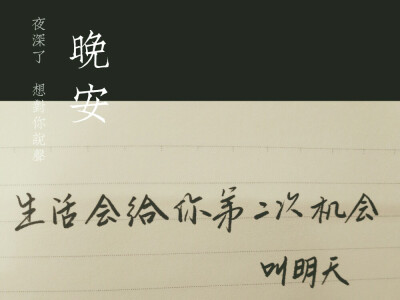 夜深了 想對你說聲
晚安
生活会给你第二次机会
叫明天